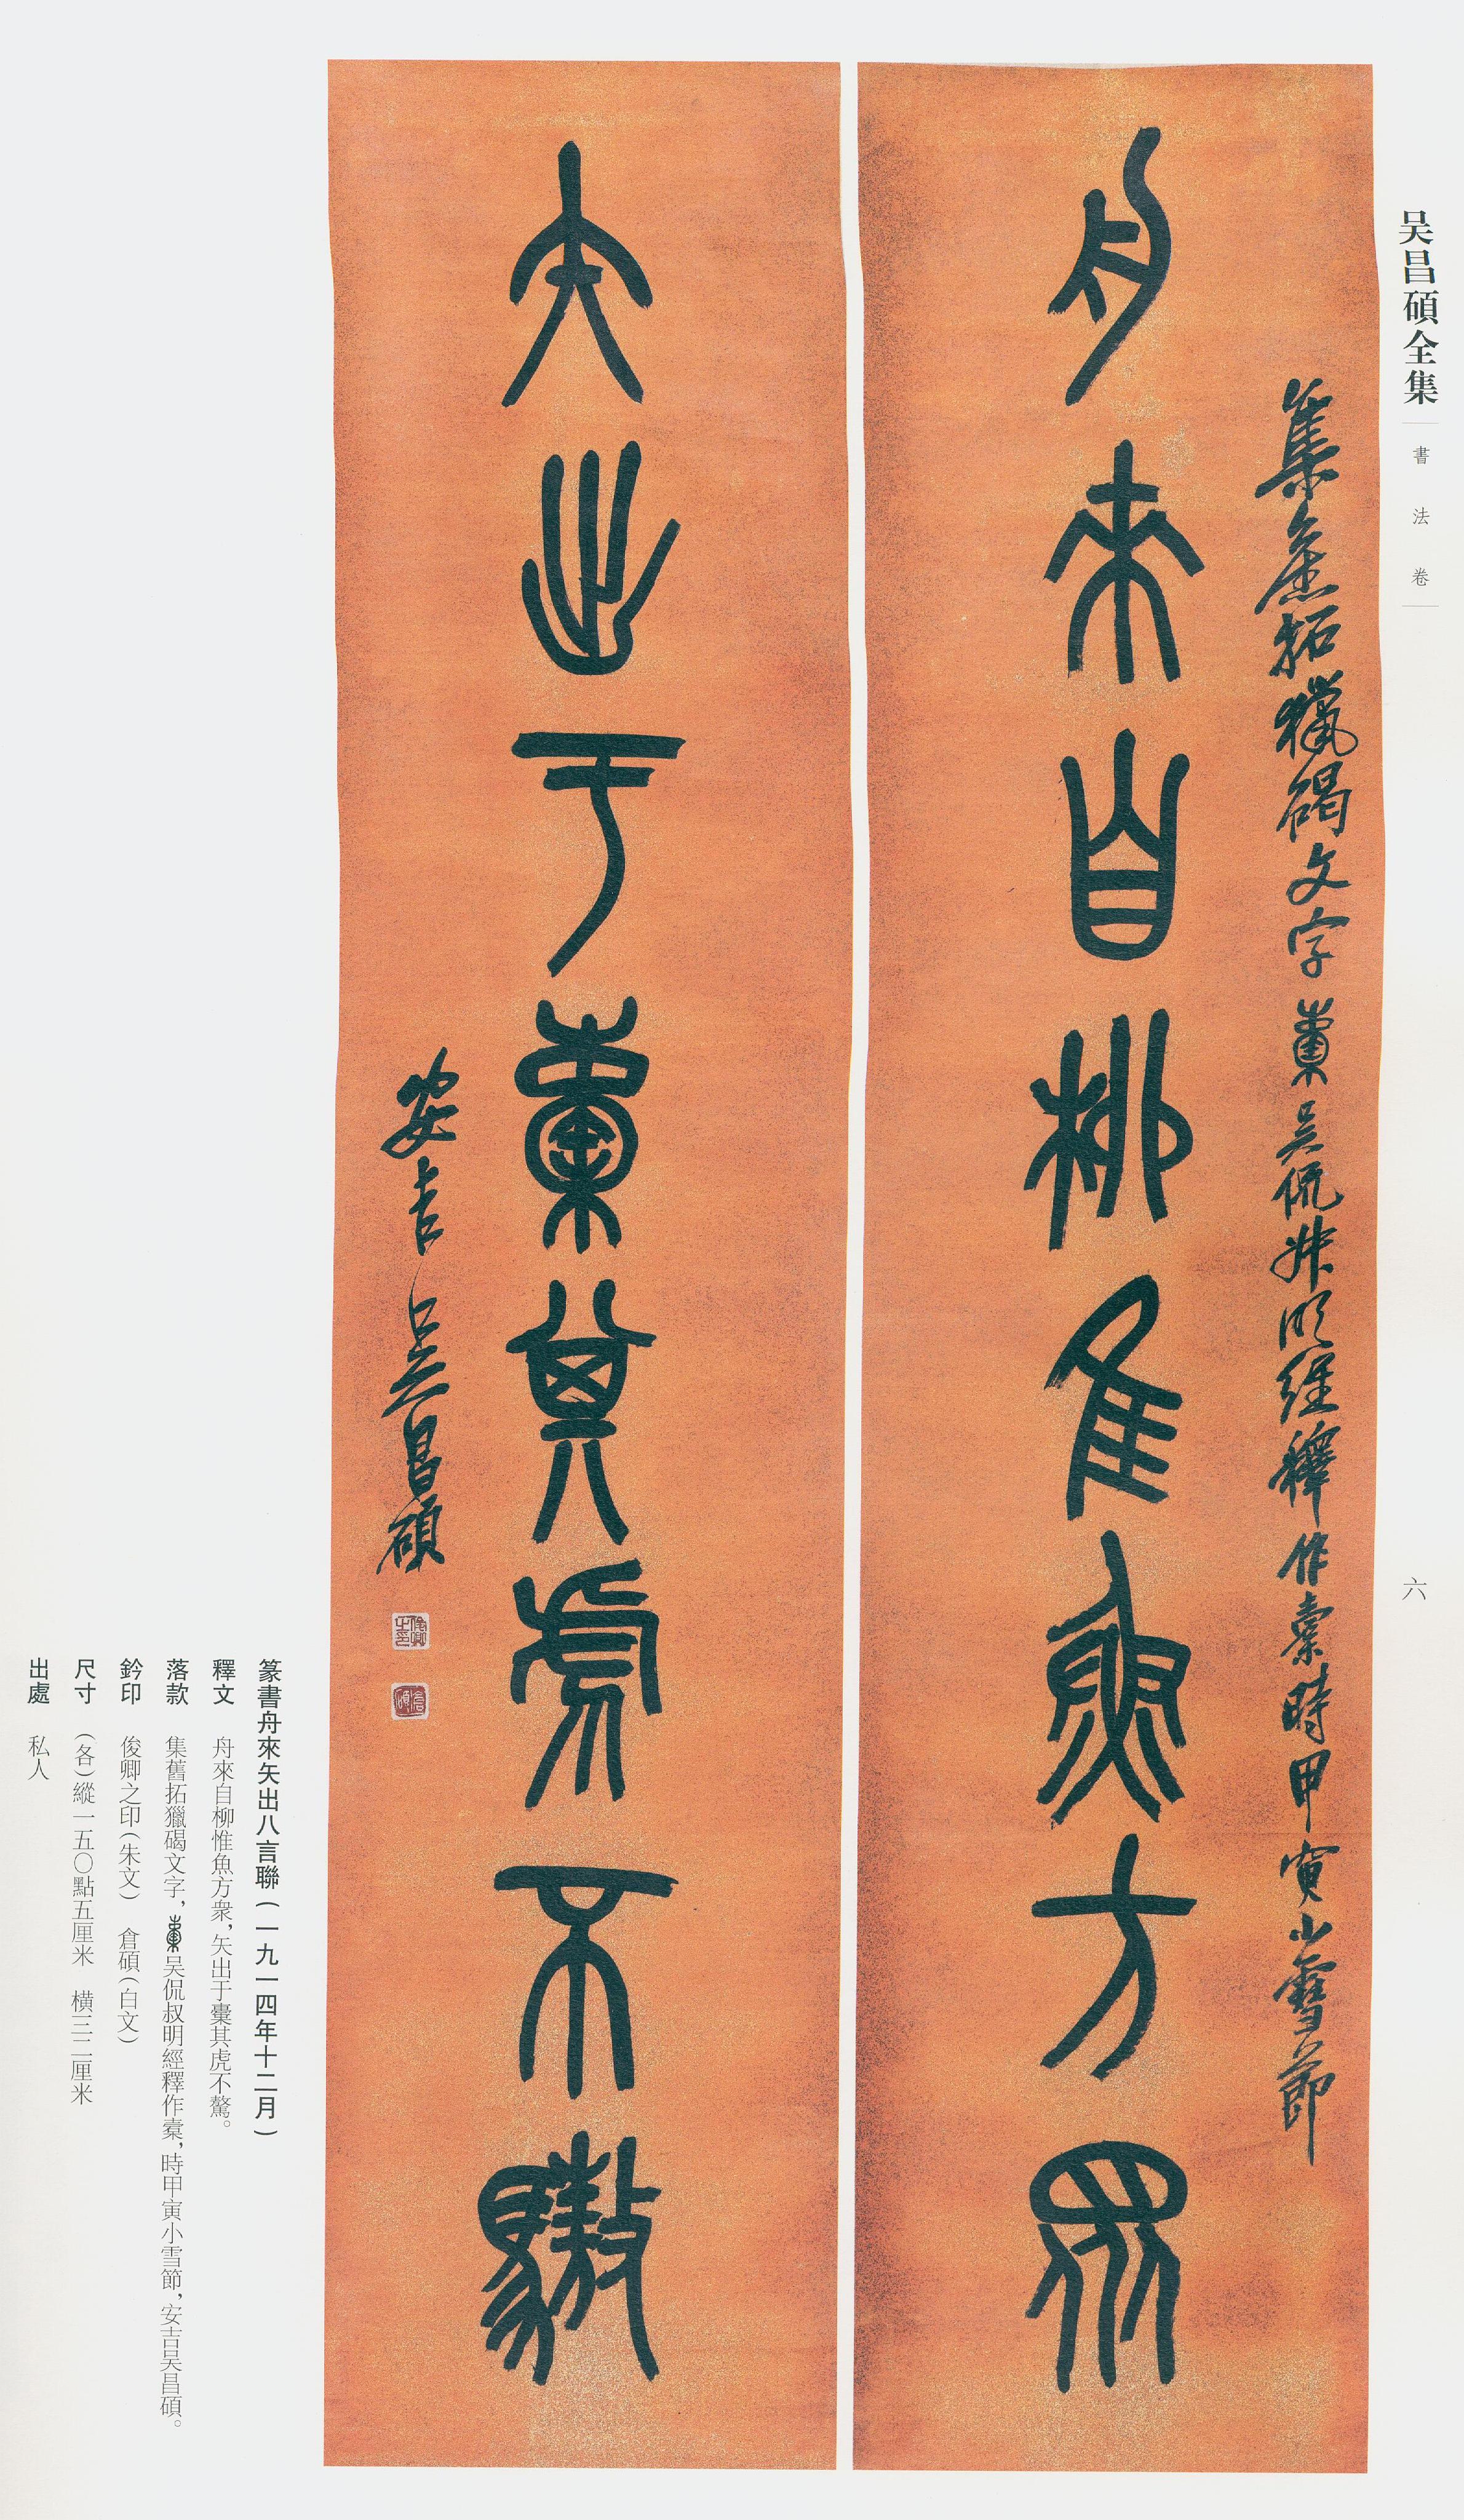 吴昌碩全集
書法卷
六
集舊拓獵碣文字 吴侃叔明經釋作櫜時甲寅小雪節
舟來自柳惟魚方衆
矢出于櫜其虎不驁
安吉吴昌碩
俊卿之印
倉碩
篆書舟來矢出八言聯(一九一四年十二月)
釋文 舟來自柳惟魚方衆,矢出于櫜其虎不驁。
落款 集舊拓獵碣文字,吴侃叔明經釋作櫜,時甲寅小雪節,安吉吴昌碩。
鈐印 俊卿之印(朱文) 倉碩(白文)
尺寸 (各)縱一五〇點五厘米 橫三二厘米
出處 私人